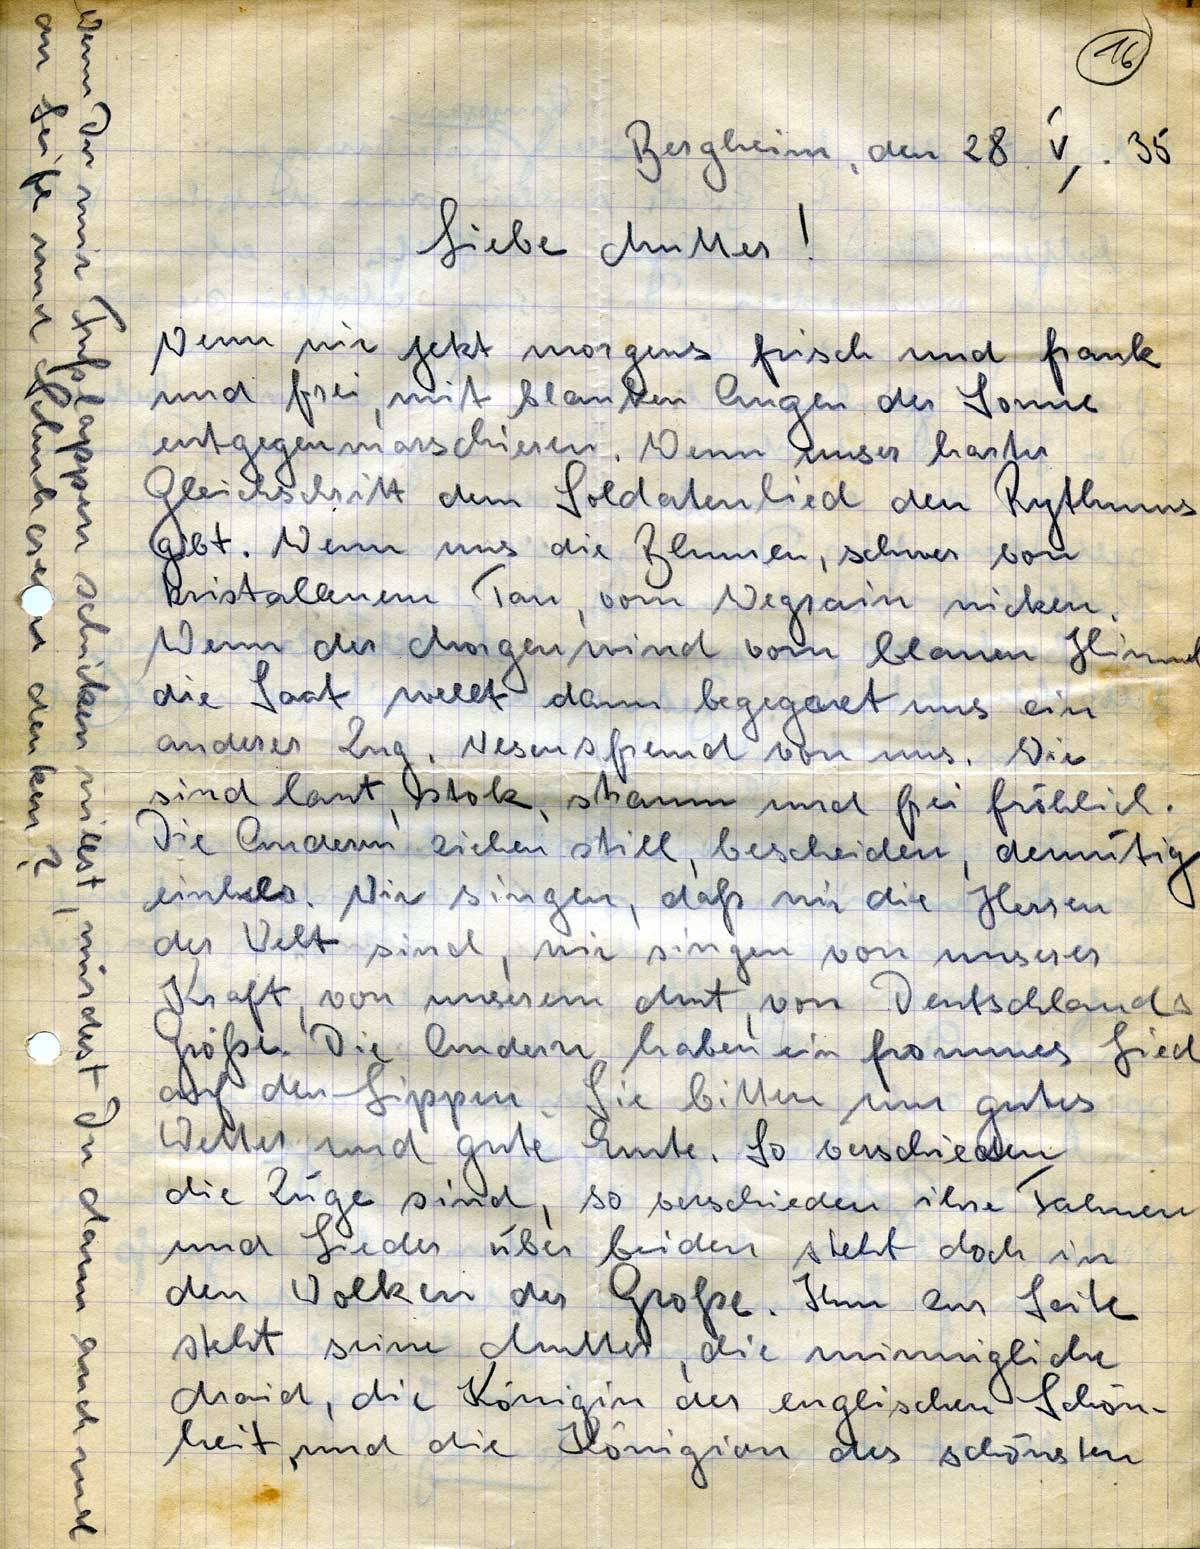 16
Bergheim, den 28. V. 35
Liebe Mutter!
Wenn wir jetzt morgens frisch und frank
und frei, mit blanken Augen der Sonne
entgegenmarschieren. Wenn unser harter
Gleichschritt dem Soldatenlied den Rythmus
gibt. Wenn uns die Blumen, schwer von
kristallenem Tau, vom Wegrain nicken.
Wenn der Morgenwind vom blauen Himmel
die Saat wellt dann begegnet uns ein
anderer Zug. Wesensfremd von uns. Wir
sind laut, stolz, stramm und frei fröhlich.
Die Andern ziehen still, bescheiden, demütig
einher. Wir singen, daß wir die Herren
der Welt sind, wir singen von unserer
Kraft, von unserem Mut, von Deutschlands
Größe. Die Andern haben ein frommes Lied
auf den Lippen. Sie bitten um gutes
Wetter und gute Ernte. So verschieden
die Züge sind, so verschieden ihre Fahnen
und Lieder über beiden steht doch in
den Wolken der Große. Ihm zur Seite
steht seine Mutter, die minnigliche
Maid, die Königin der englischen Schön-
heit, und die Königin des schönsten
Wenn Du mir Fußlappen schicken willst, würdest Du dann auch mal
an Seife und Schuhcreme denken?